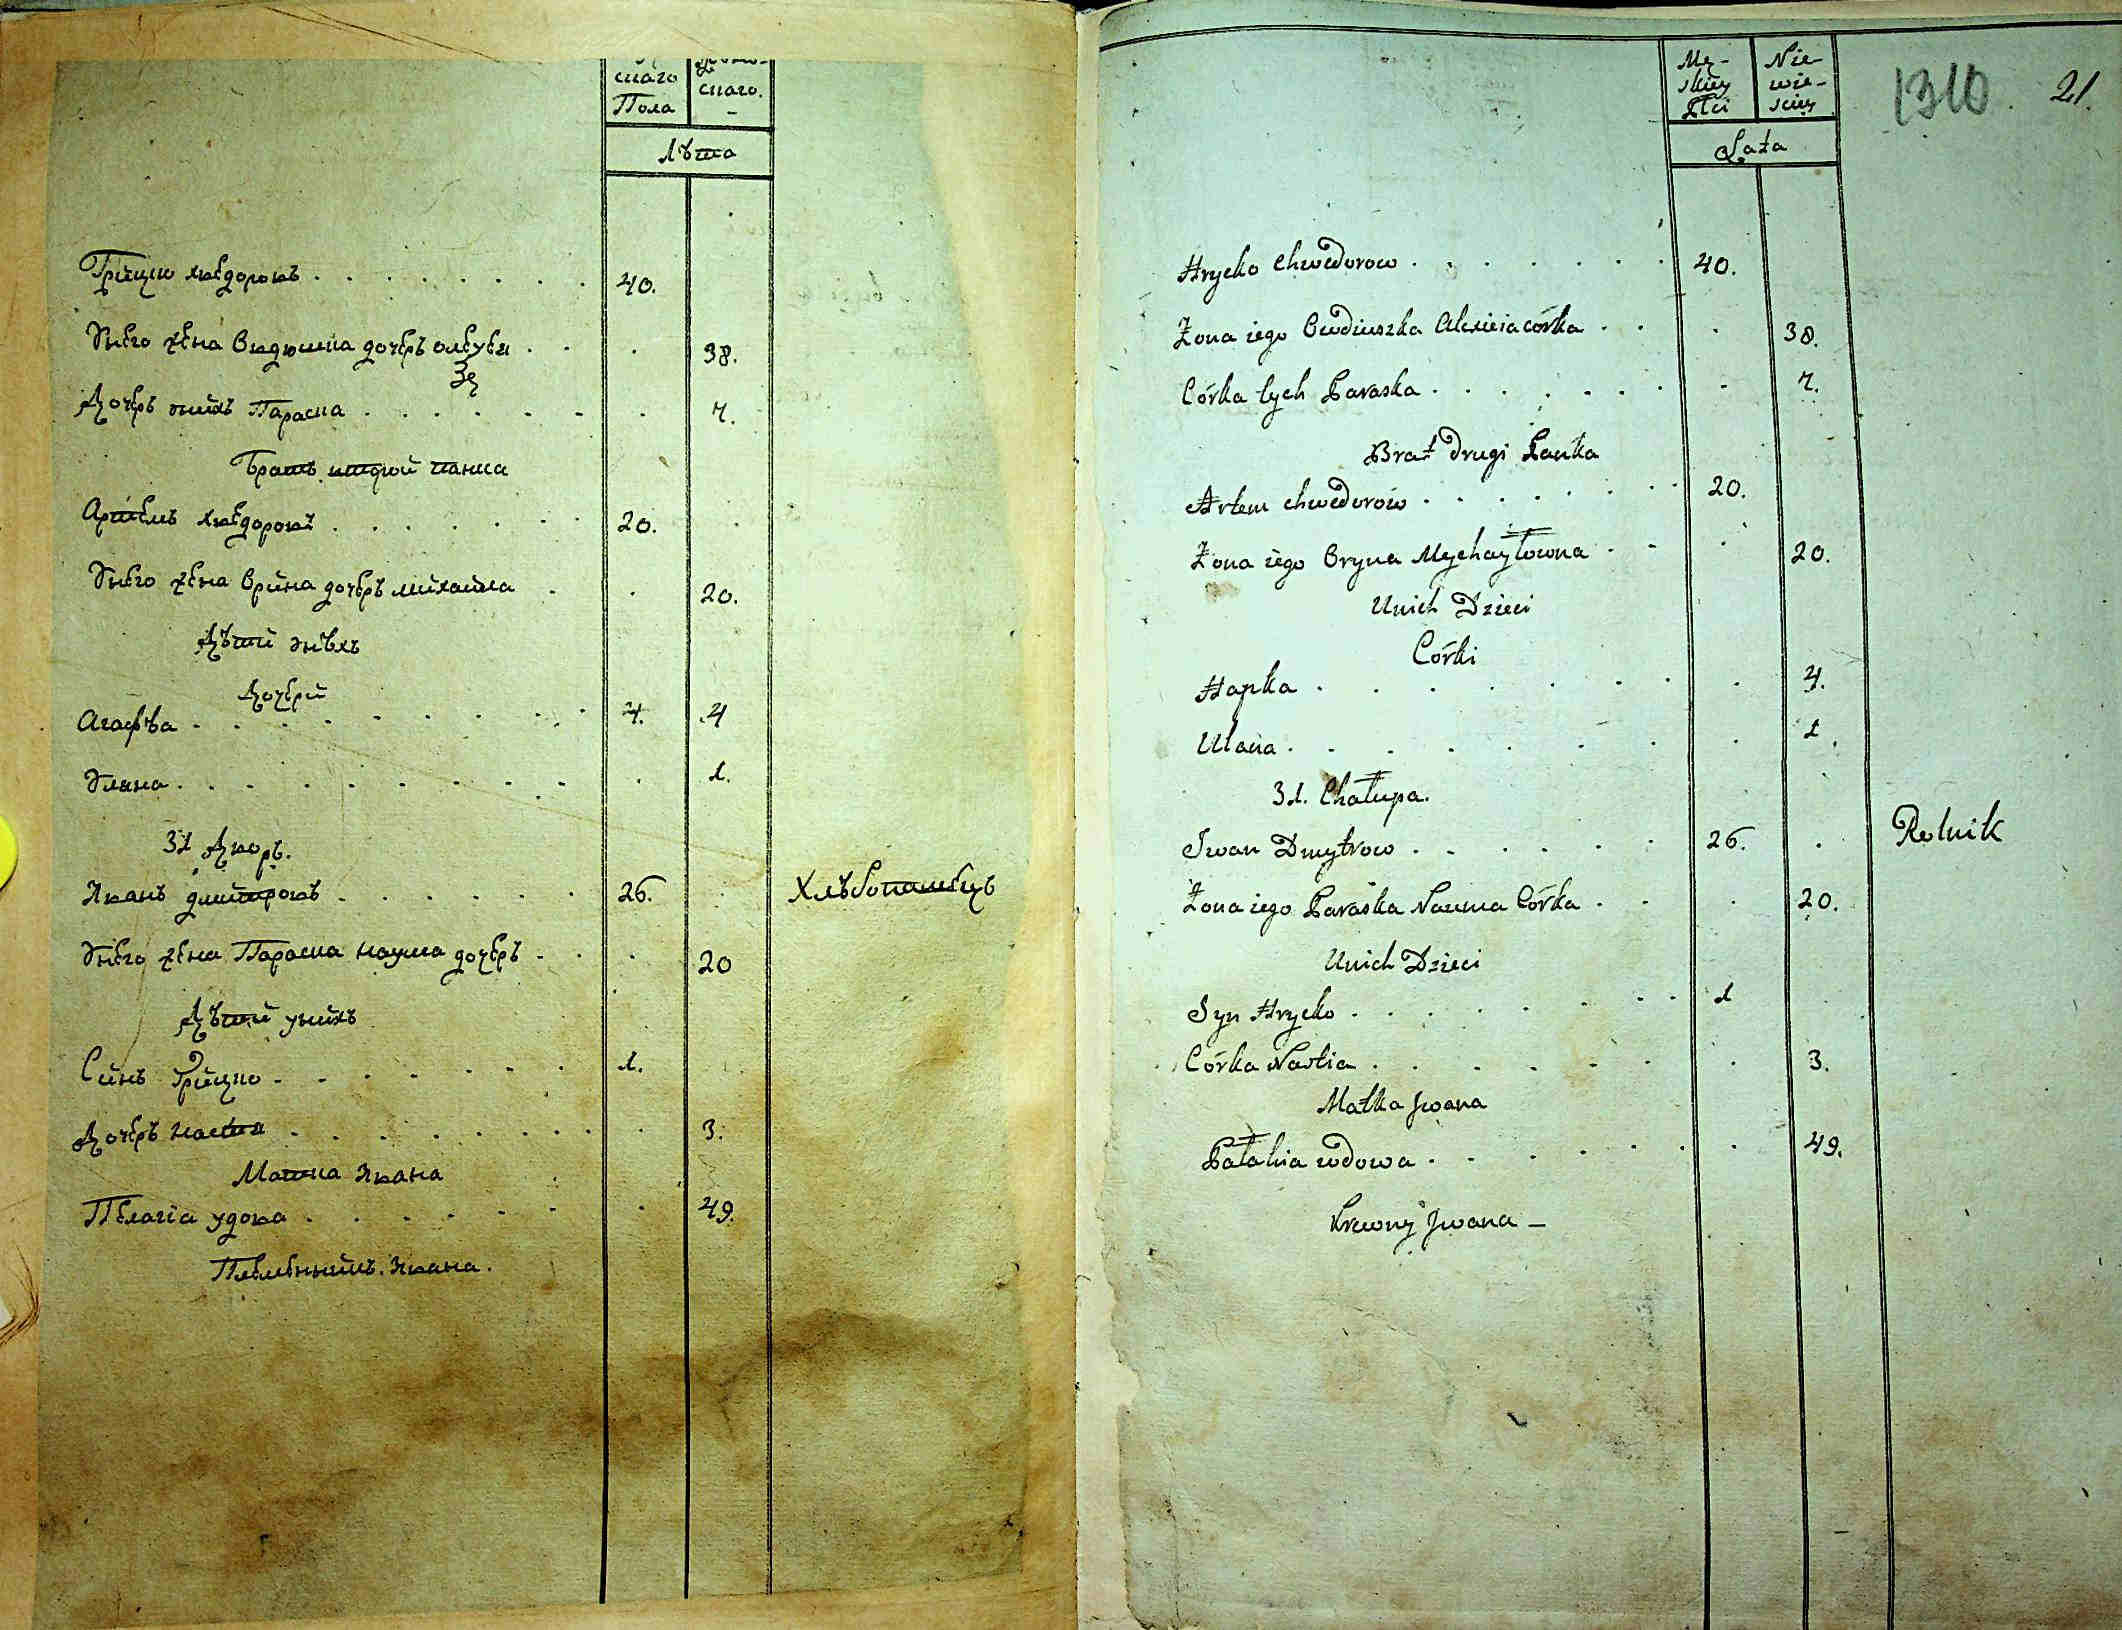 скаго
Пола
скаго.
Лѣта
Грицко хведоровъ 40.
Унего жена Овдюшка дочеръ олексѣя 38.
Дочеръ тихъ Параска 7.
Братъ втдрой панка
Артемъ хведоровъ 20.
Унего жена Орина дочеръ михайла 20.
Дѣти энѣхъ
Дочери
Агафѣа 4. 4
Уляна 1.
31 Дворъ.
Иванъ дмитровъ 26. Хлѣбопашецъ
Унего жена Параска наума дочеръ 20
Дѣти унихъ
Синъ Грицко 1.
Дочеръ настя 3.
Матка Ивана
Пелагіа удова 49.
Племенникъ Ивана.
Mę-
skiey
Płci
Nie-
wie-
sciey
1310. 21.
Lata
Hrycko Chwedorow 40.
Żona iego Owdiuszka Alexieia córka 38.
Córka tych Paraska 7.
Brat drugi Panka
Artem Chwedorow 20.
Żona iego Oryna Mychayłowna 20.
Unich Dzieci
Córki
Hapka 4.
Ulana 1.
31. Chałupa.
Iwan Dmytrow 26. Rolnik
Żona iego Paraska Nauma Córka 20.
Unich Dzieci
Syn Hrycko 1
Córka Nastia 3.
Matka Jwana
Pałahia wdowa 49.
Krewny Jwana –